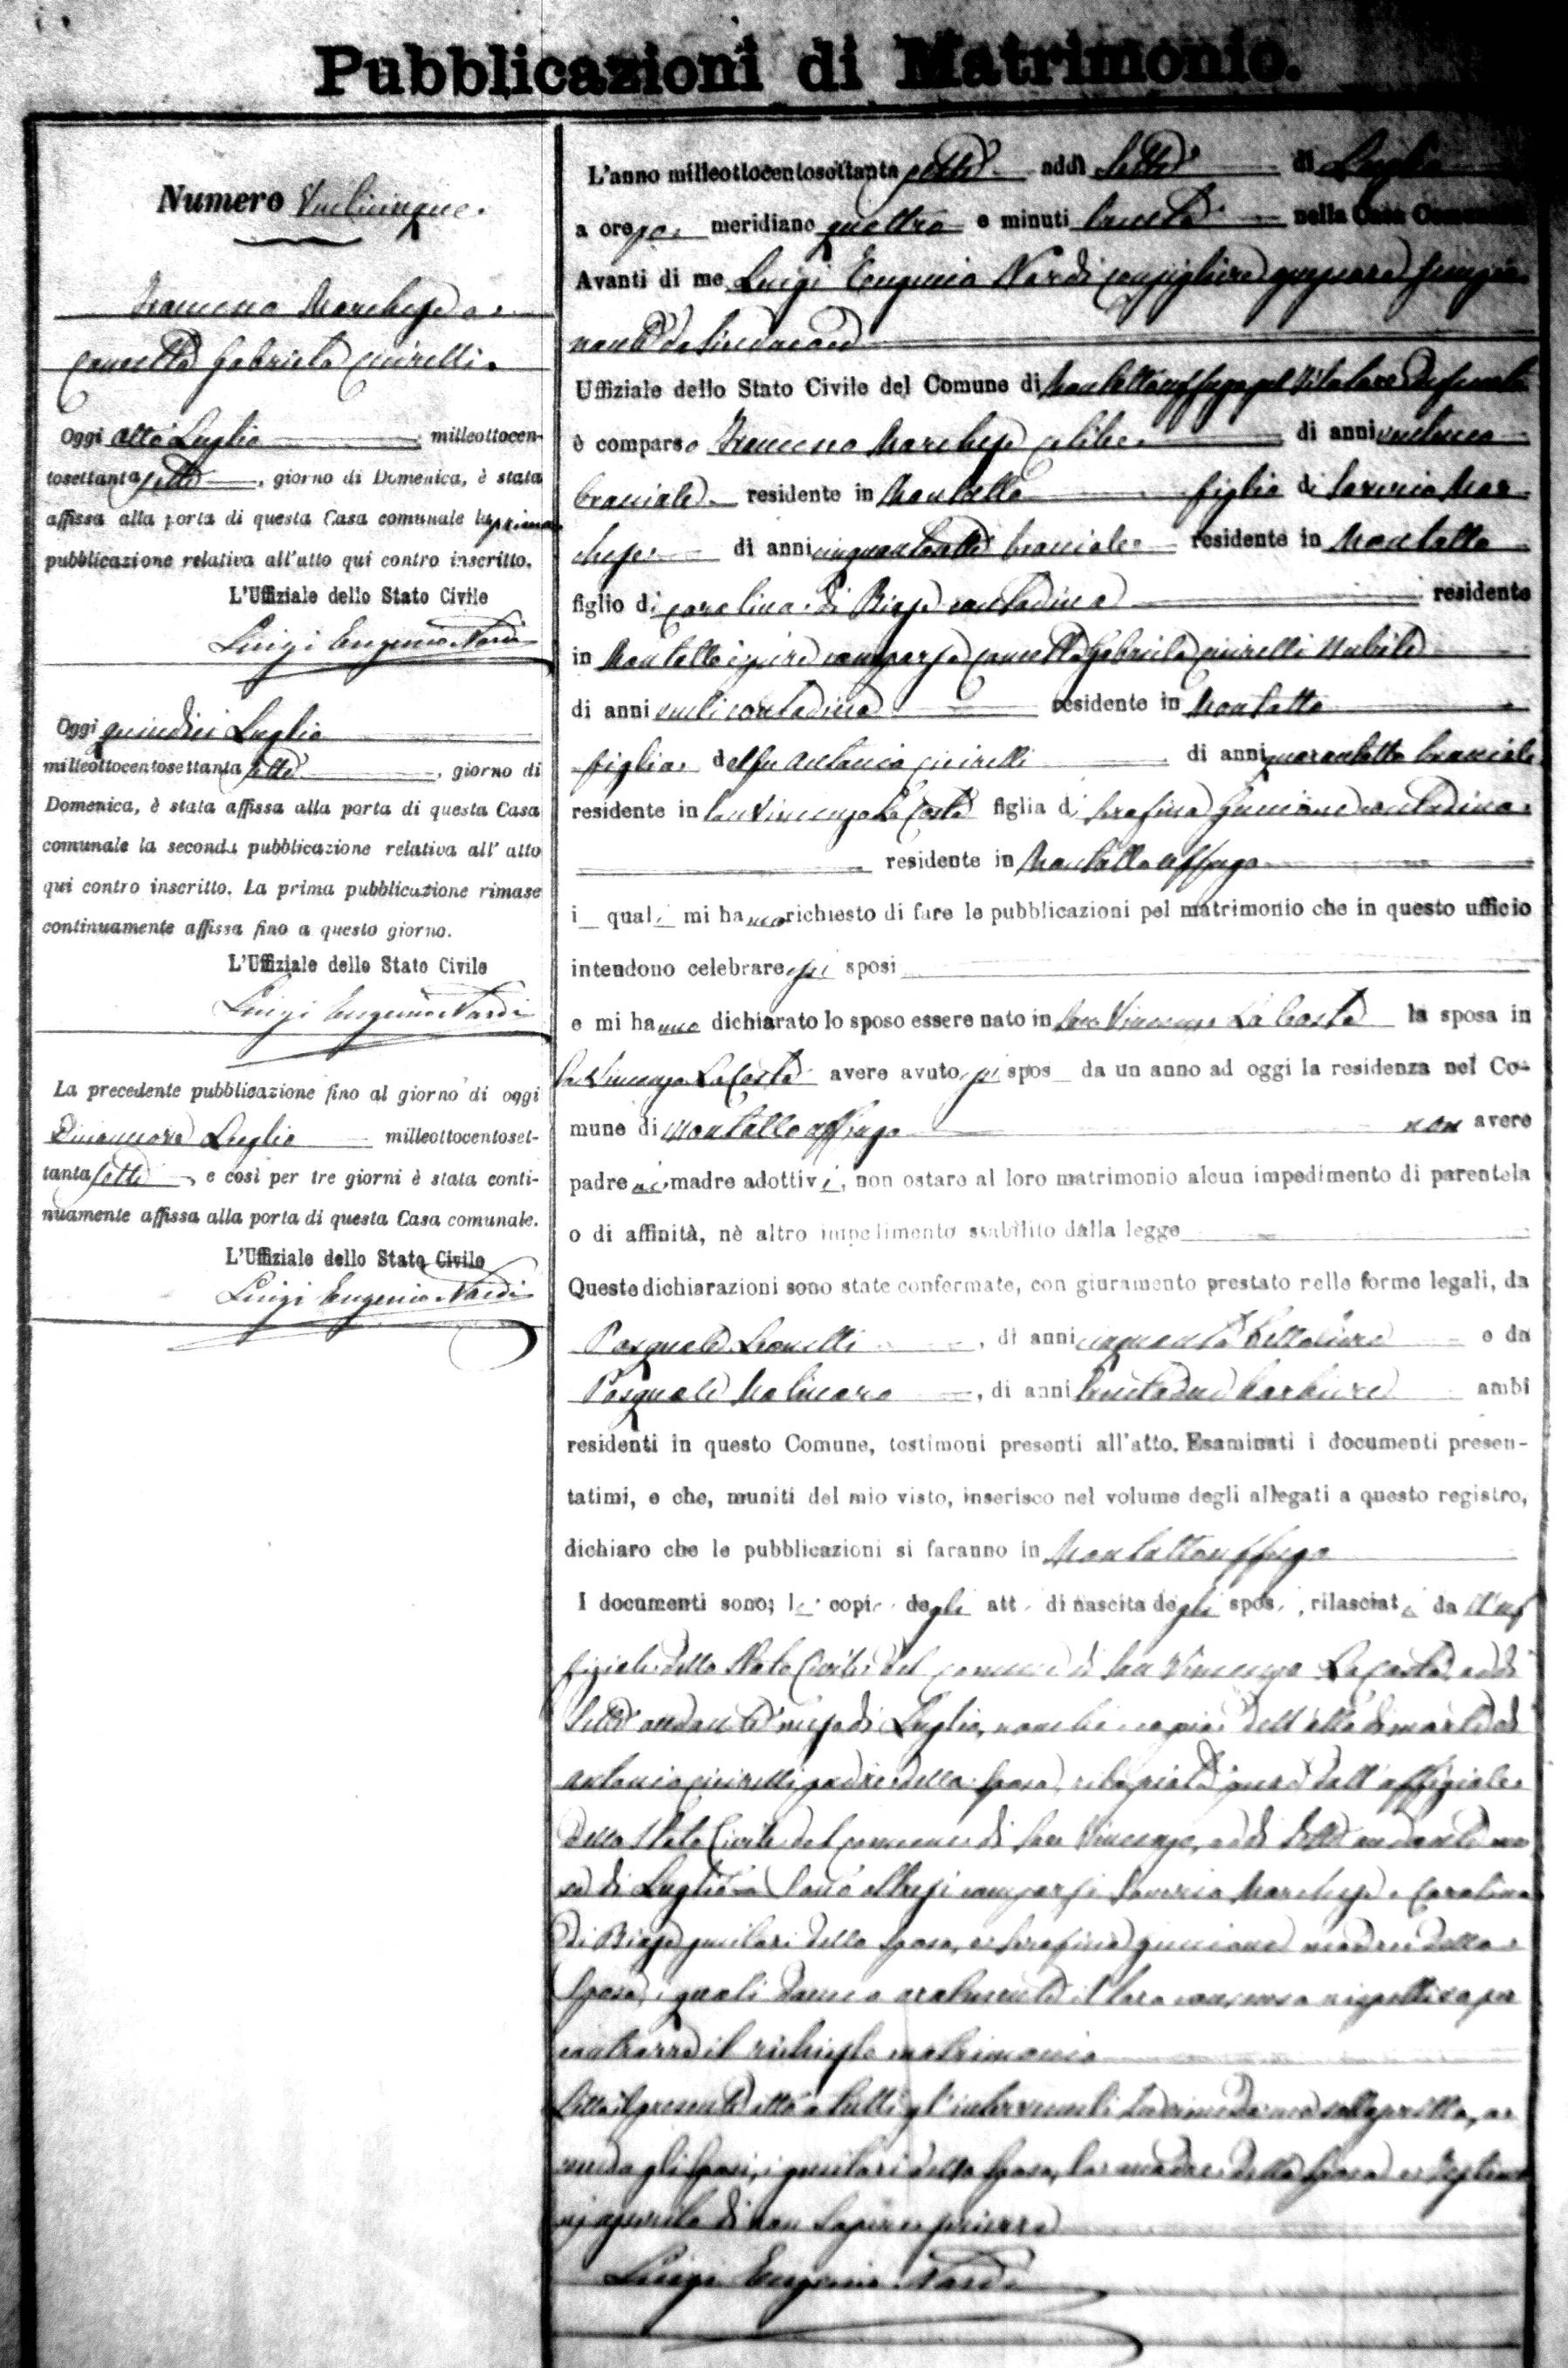 Pubblicazioni di Matrimonio.
Numero Venticinque.
Francesco Marchese e
Concetta Gabriela Cicirelli.
Oggi otto Luglio milleottocen-
tosettantasette, giorno di Domenica, è stata
affissa alla porta di questa Casa comunale la prima
pubblicazione relativa all'atto qui contro inscritto.
L'Uffiziale dello Stato Civile
Luigi Eugenio Nardi
Oggi quindici Luglio
milleottocentosettantasette, giorno di
Domenica, è stata affissa alla porta di questa Casa
comunale la seconda pubblicazione relativa all' atto
qui contro inscritto. La prima pubblicazione rimase
continuamente affissa fino a questo giorno.
L'Uffiziale dello Stato Civile
Luigi Eugenio Nardi
La precedente pubblicazione fino al giorno di oggi
Diciannove Luglio milleottocentoset-
tantasette e così per tre giorni è stata conti-
nuamente affissa alla porta di questa Casa comunale.
L'Uffiziale dello Stato Civile
Luigi Eugenio Nardi
L'anno milleottocentosettantasette addì sette di Luglio
a ore pomeridiane quattro e minuti trenta nella Casa Comunale
Avanti di me Luigi Eugenio Nardi consigliere funzio
nante da Sindaco
Uffiziale dello Stato Civile del Comune di Montalto uffugo pel titolare
è comparso Francesco Marchese celibe di anni ventuno
bracciale residente in Montalto figlio di Saverio Mar
chese di anni cinquantasette bracciale residente in Montalto
figlio di Carolina di Biase contadina residente
in Montalto è pure comparsa Concetta Gabriela Cicirelli Nubile
di anni venti contadina residente in Montalto
figlia del fu Antonio Cicirelli di anni quarantotto bracciale
residente in San Vincenzo La Costa figlia di Serafina Guccione contadina
residente in Montalto uffugo
i quali mi hanno richiesto di fare le pubblicazioni pel matrimonio che in questo ufficio
intendono celebrare essi sposi
e mi hanno dichiarato lo sposo essere nato in San Vincenzo La Costa la sposa in
San Vincenzo La Costa avere avuto gli spos da un anno ad oggi la residenza nel Co-
mune di Montalto uffugo non avere
padre nè madre adottivi, non ostare al loro matrimonio alcun impedimento di parentela
o di affinità, nè altro impedimento stabilito dalla legge
Queste dichiarazioni sono state confermate, con giuramento prestato nelle forme legali, da
Pasquale Leonetti, di anni cinquanta bettoliere e da
Pasquale Molinaro, di anni trentadue barbiere ambi
residenti in questo Comune, testimoni presenti all'atto. Esaminati i documenti presen-
tatimi, e che, muniti del mio visto, inserisco nel volume degli allegati a questo registro,
dichiaro che le pubblicazioni si faranno in Montalto uffugo
I documenti sono; le copie degli atti di nascita degli sposi, rilasciate da ll'uf
fiziale dello Stato Civile del comune di San Vincenzo La Costa addì
Sette andante mese di Luglio, nonchè copia dell'atto di morte di
Antonio Cicirelli padre della sposa, rilasciato pure dall'uffiziale
dello Stato Civile del comune di San Vincenzo, addì Sette andante me
se di Luglio Sono altresì comparsi Saverio Marchese e Carolina
di Biase genitori dello sposo, e Serafina Guccione madre della
sposa, i quali danno oralmente il loro consenso rispettivo per
contrarre il richiesto matrimonio
Letto il presente atto a tutti gl'intervenuti da me sottoscritto, a
vendo gli sposi, i genitori dello sposo, la madre della sposa e testimo
nj asserito di non sapere scrivere
Luigi Eugenio Nardi